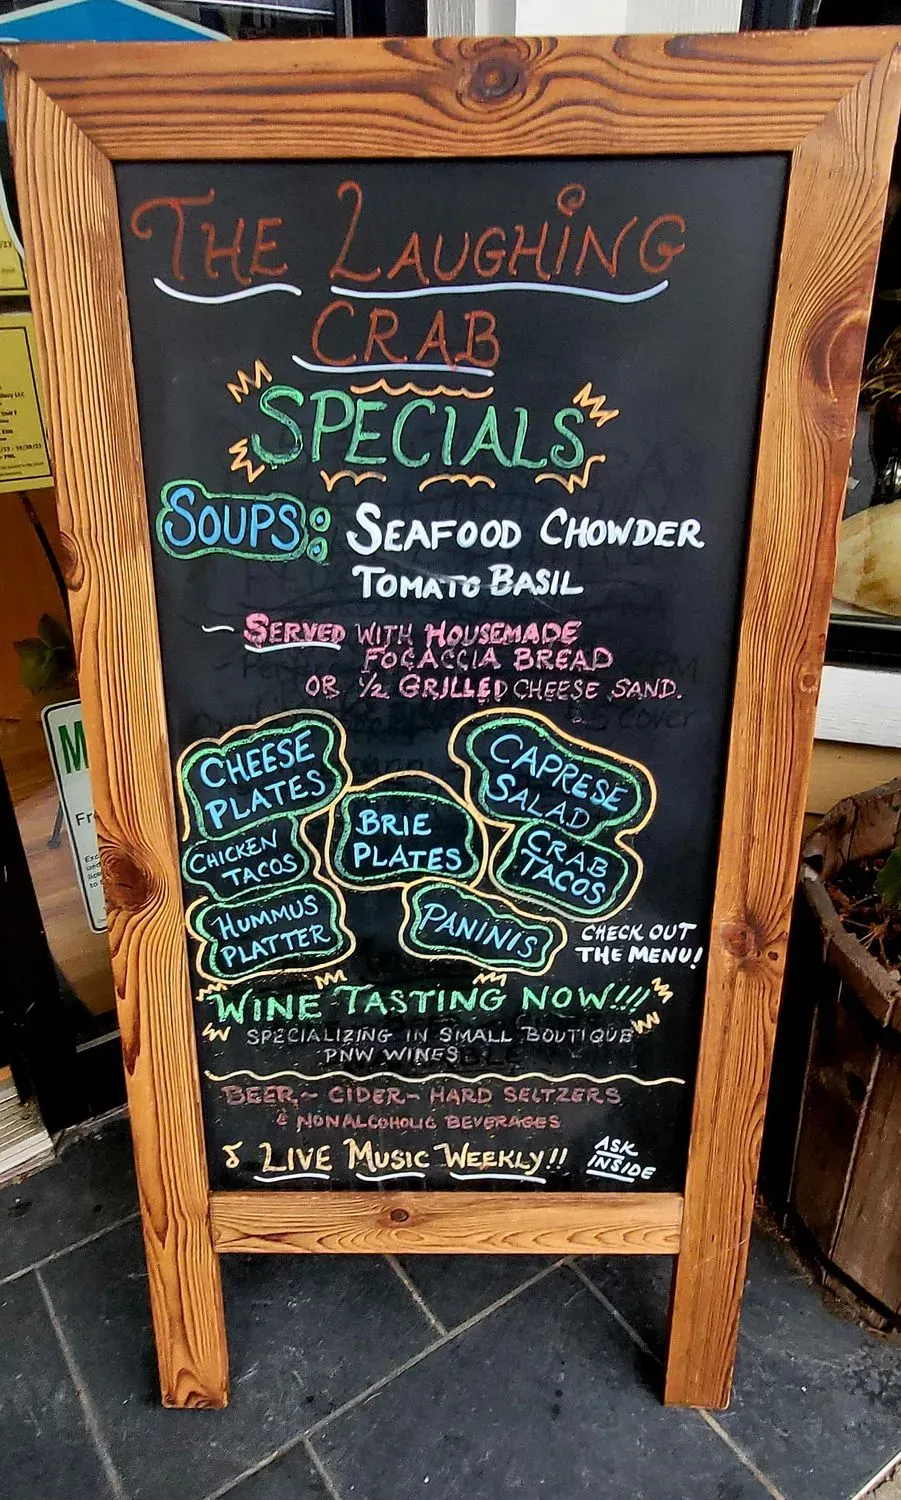 THE LAUGHING
CRAB
SPECIALS
SOUPS: SEAFOOD CHOWDER
TOMATO BASIL
- SERVED WITH HOUSEMADE
FOCACCIA BREAD
OR 1/2 GRILLED CHEESE SAND.
CHEESE
PLATES
CAPRESE
SALAD
BRIE
PLATES
CHICKEN
TACOS
CRAB
TACOS
HUMMUS
PLATTER
PANINIS
CHECK OUT
THE MENU!
WINE TASTING NOW!!!
SPECIALIZING IN SMALL BOUTIQUE
PNW WINES
BEER~ CIDER~ HARD SELTZERS
& NONALCOHOLIC BEVERAGES
♪ LIVE MUSIC WEEKLY!!
ASK
INSIDE